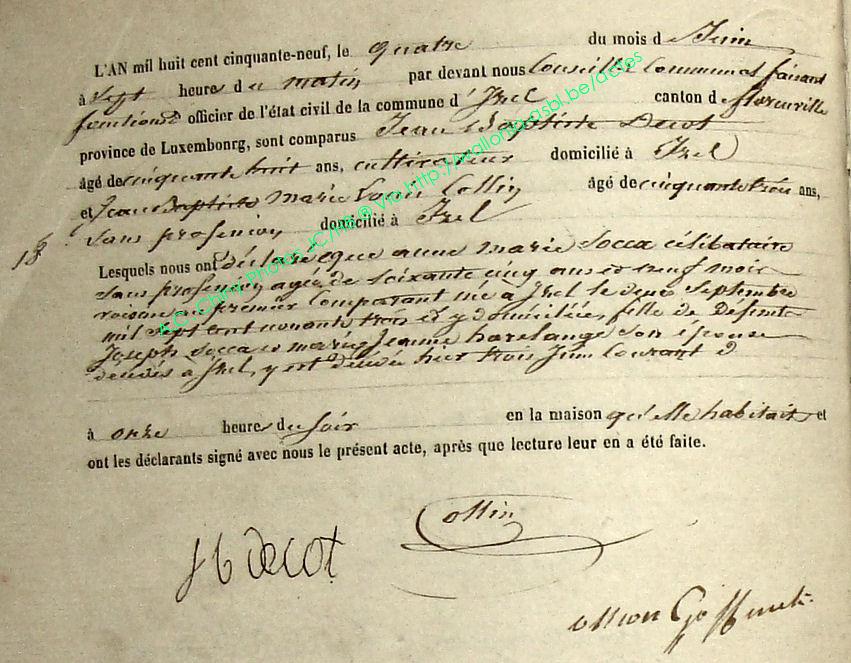 L'AN mil huit cent cinquante-neuf, le quatre du mois d e Juin
à sept heures du matin par devant nous Conseiller Communal faisant
fonctions officier de l'état civil de la commune d' Izel canton d e florenville
province de Luxembourg, sont comparus Jean Baptiste Decot
âgé de cinquante huit ans, cultivateur domicilié à Izel
et Jean Baptiste Marie Louis Collin âgé de cinquante trois ans,
sans profession domicilié à Izel
18
Lesquels nous ont déclaré que anne marie Socca célibataire
sans profession agée de soixante cinq ans et neuf mois
voisine au premier Comparant née à Izel le deux Septembre
mil sept cent nonante trois et y domiciliée, fille de Defunts
Joseph Socca et marie Jeanne harelange son épouse
décédés à Izel, y est décédée hier trois Juin Courant
à onze heures du soir en la maison qu'elle habitait et
ont les déclarants signé avec nous le présent acte, après que lecture leur en a été faite.
Collin
JB Decot
Goffinet
EC Chiny Photos JC/HB ® Via http://wallonia-asbl.be/actes